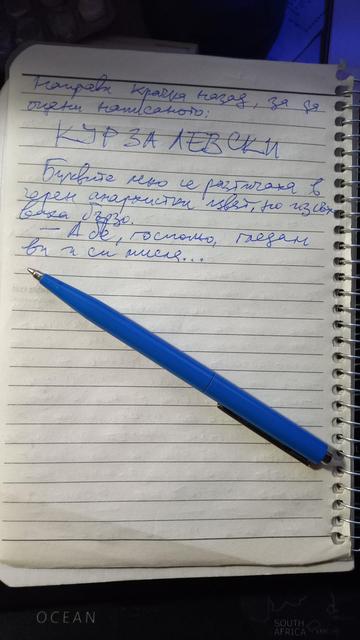 Направи крачка назад, за да
оцени написаното:
КУР ЗА ЛЕВСКИ
Буквите леко се разтичаха в
черен анархистки цвят, но изсъх
ваха бързо.
– А бе, господю, гледам
ви и си мисля...
OCEAN
SOUTH
AFRICA